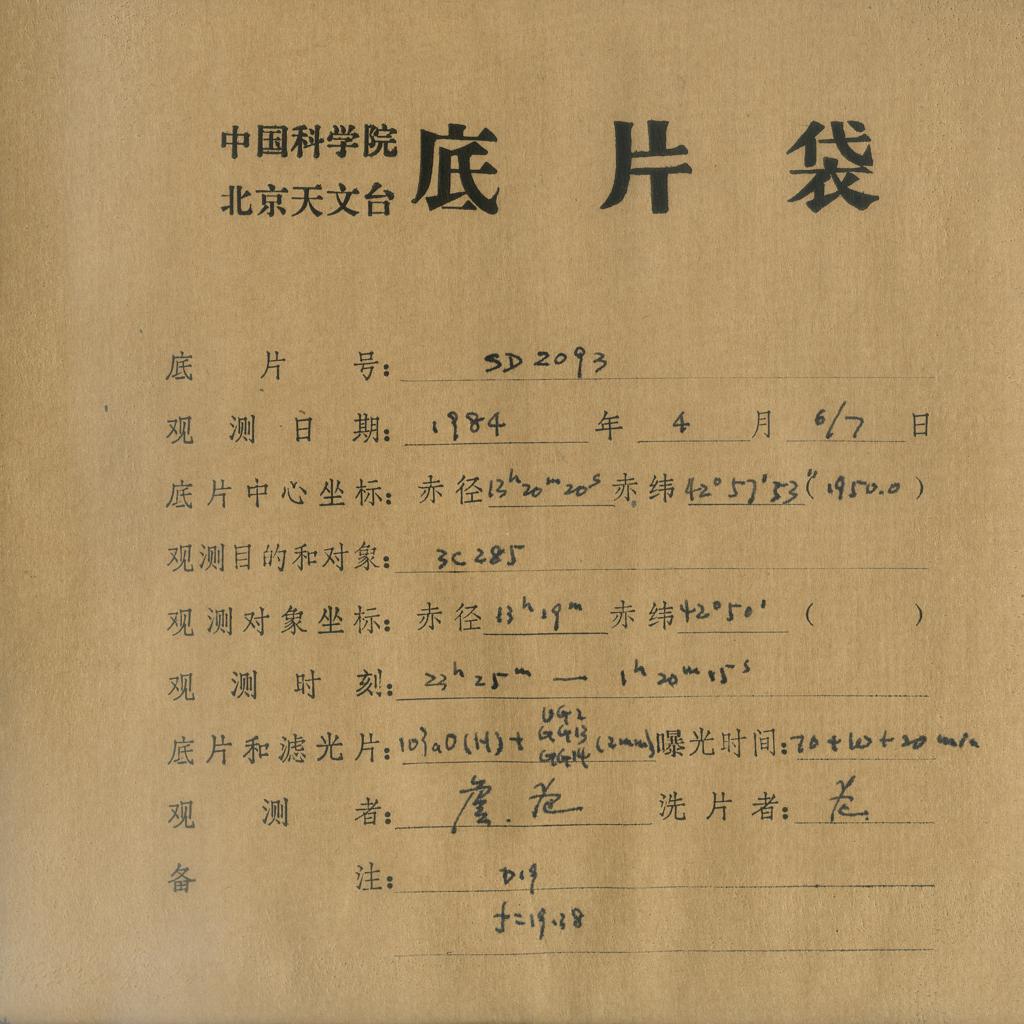 中国科学院
北京天文台
底片袋
底片号: SD2093
观测日期: 1984年4月6/7日
底片中心坐标: 赤径13ʰ20ᵐ20ˢ赤纬42°57'53"(1950.0)
观测目的和对象: 3C285
观测对象坐标: 赤径13ʰ19ᵐ赤纬42°50'( )
观测时刻: 23ʰ25ᵐ — 1ʰ20ᵐ15ˢ
底片和滤光片: 103aO(H)+ UG2 GG13 GG14 (2mm) 曝光时间: 70+10+20 min
观测者: 洗片者:
备注: D19
f=19.38